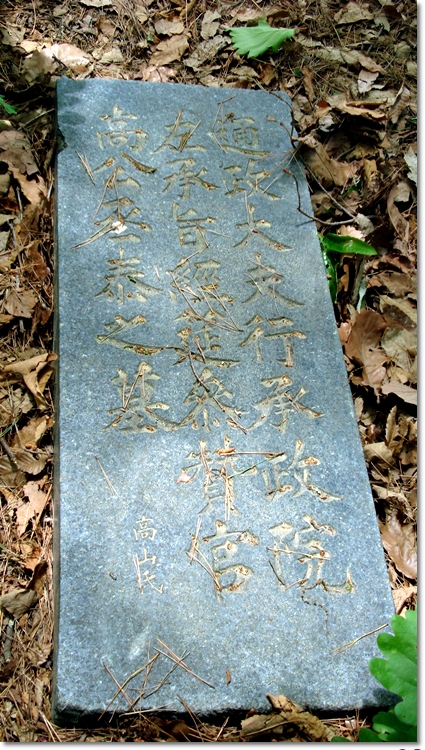 通政大夫行承政院
左承旨經筵參贊官
高公丕泰之墓
高